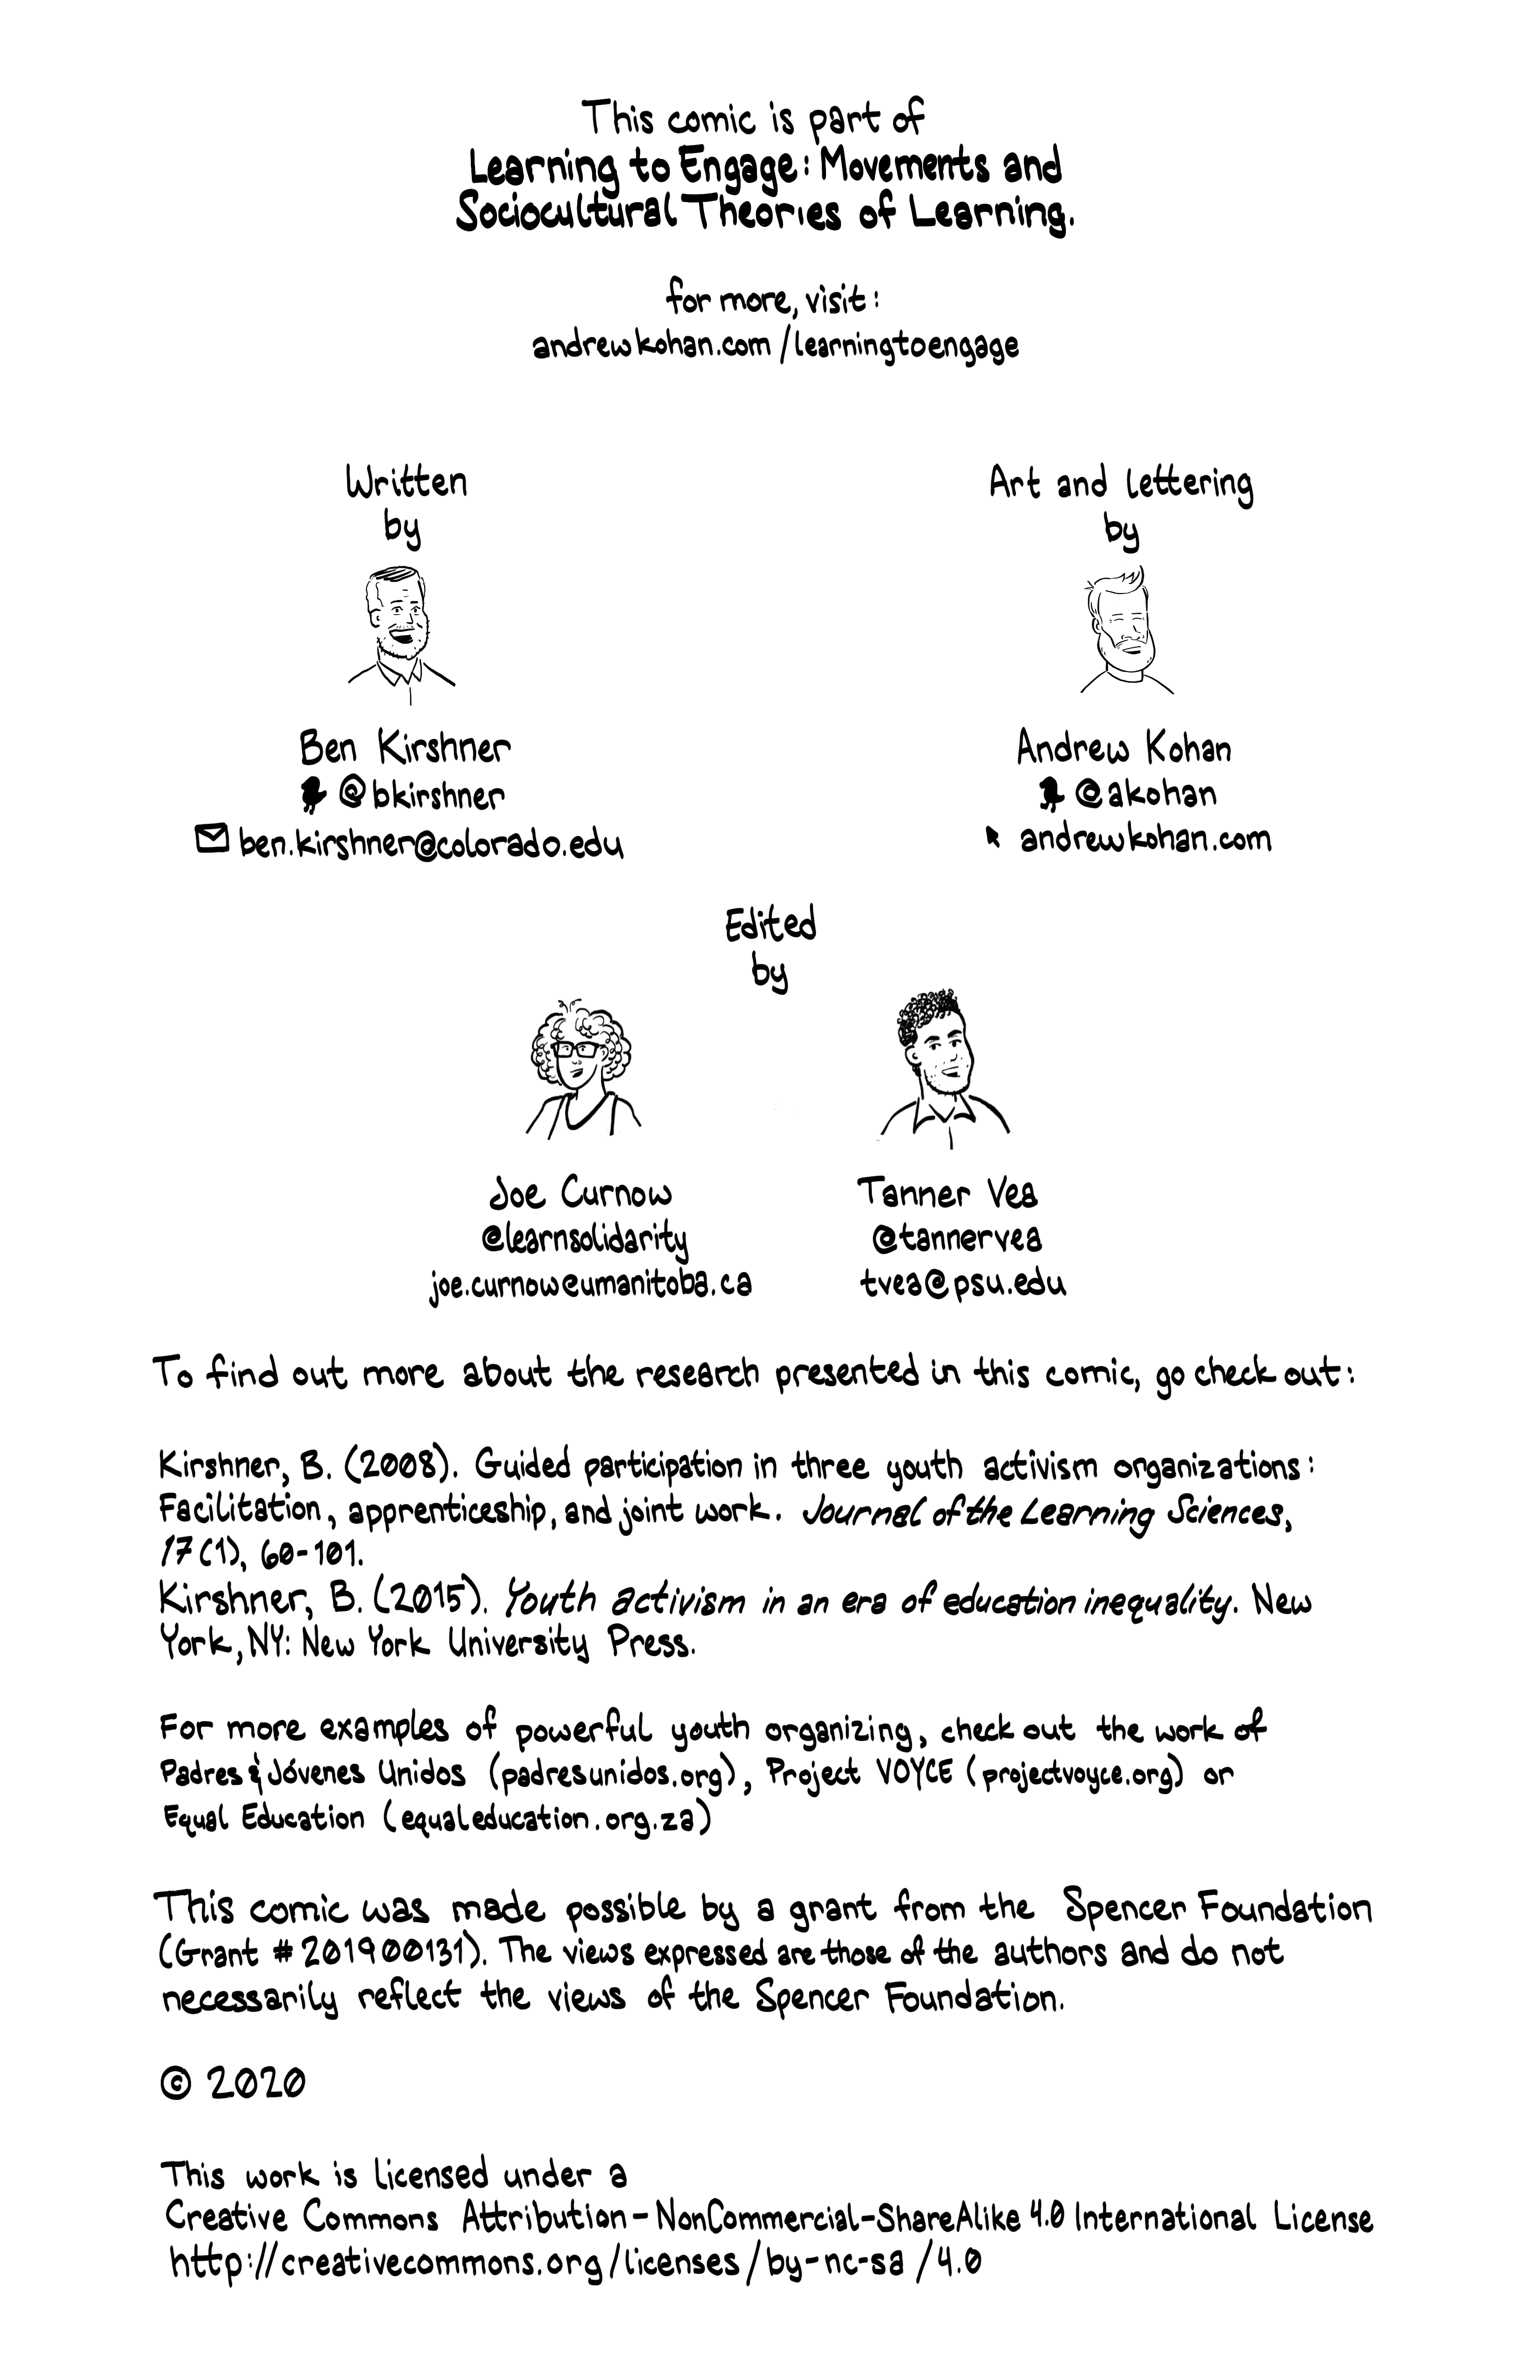 This comic is part of
Learning to Engage: Movements and
Sociocultural Theories of Learning.
for more, visit:
andrewkohan.com/learningtoengage
Written
by
Ben Kirshner
@bkirshner
ben.kirshner@colorado.edu
Art and lettering
by
Andrew Kohan
@akohan
andrewkohan.com
Edited
by
Joe Curnow
@learnsolidarity
joe.curnow@umanitoba.ca
Tanner Vea
@tannervea
tvea@psu.edu
To find out more about the research presented in this comic, go check out:
Kirshner, B. (2008). Guided participation in three youth activism organizations:
Facilitation, apprenticeship, and joint work. Journal of the Learning Sciences,
17(1), 60-101.
Kirshner, B. (2015). Youth activism in an era of education inequality. New
York, NY: New York University Press.
For more examples of powerful youth organizing, check out the work of
Padres & Jóvenes Unidos (padresunidos.org), Project VOYCE (projectvoyce.org) or
Equal Education (equaleducation.org.za)
This comic was made possible by a grant from the Spencer Foundation
(Grant #201900131). The views expressed are those of the authors and do not
necessarily reflect the views of the Spencer Foundation.
© 2020
This work is licensed under a
Creative Commons Attribution-NonCommercial-ShareAlike 4.0 International License
http://creativecommons.org/licenses/by-nc-sa/4.0